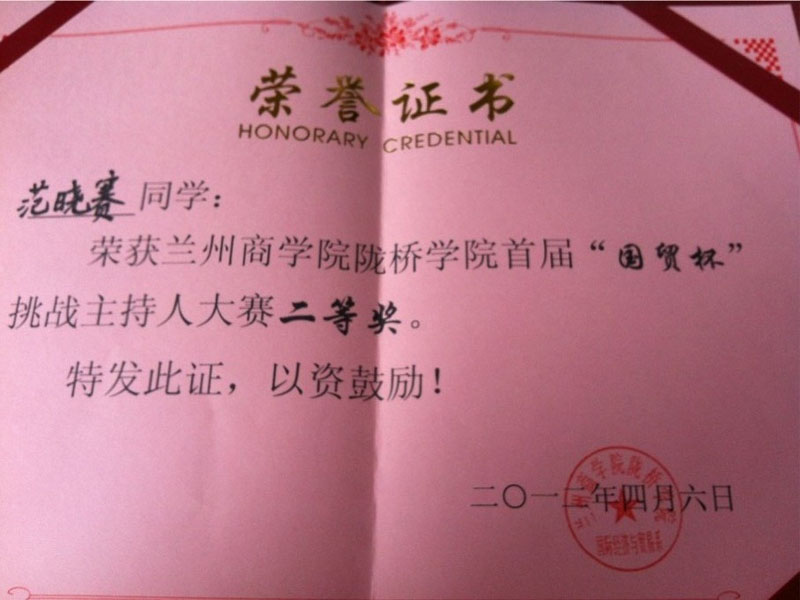 荣誉证书
HONORARY CREDENTIAL
范晓赛同学：
荣获兰州商学院陇桥学院首届“国贸杯”
挑战主持人大赛二等奖。
特发此证，以资鼓励！
二〇一二年四月六日
兰州商学院陇桥学院
国际经济与贸易系